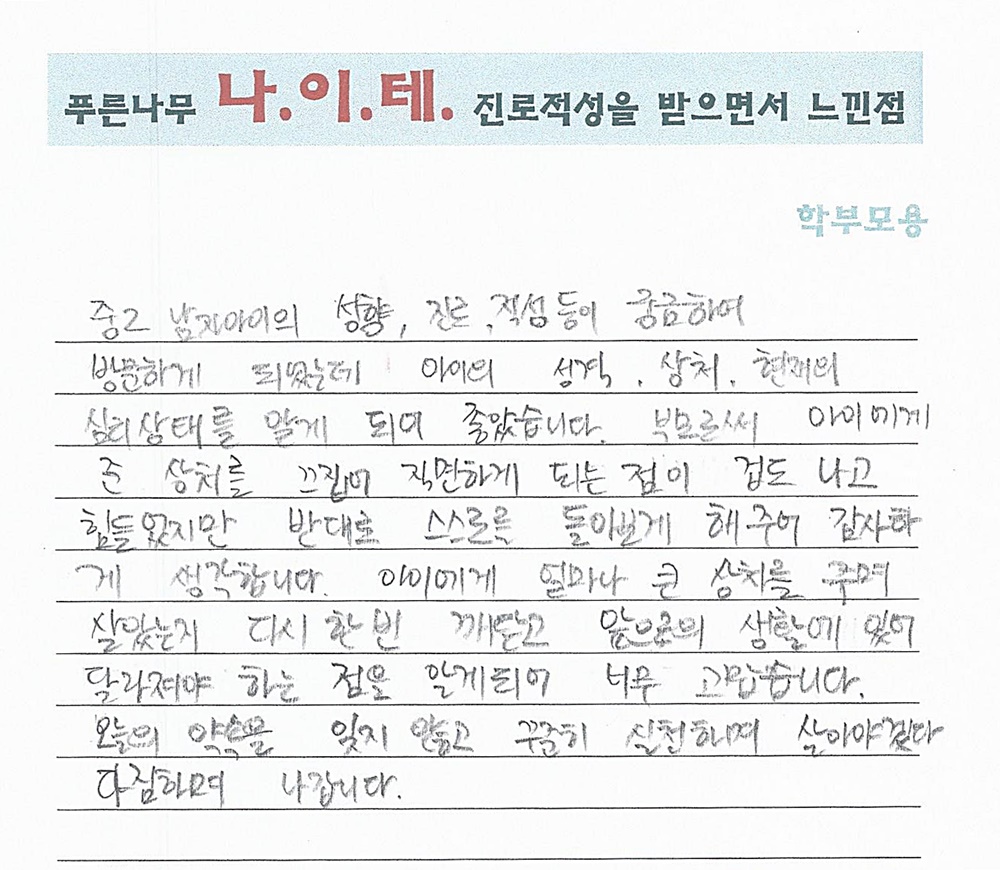 푸른나무 나.이.테. 진로적성을 받으면서 느낀점
학부모용
중2 남자아이의 성향, 진로, 적성 등이 궁금하여
방문하게 되었는데 아이의 성격, 상처, 현재의
심리상태를 알게 되어 좋았습니다. 부모로써 아이에게
준 상처를 끄집어 직면하게 되는 점이 겁도 나고
힘들었지만 반대로 스스로를 돌아보게 해주어 감사하
게 생각합니다. 아이에게 얼마나 큰 상처를 주며
살았는지 다시 한번 깨닫고 앞으로의 생활에 있어
달라져야 하는 점을 알게되어 너무 고맙습니다.
오늘의 약속을 잊지 않고 꾸준히 실천하며 살아야겠다
다짐하며 나갑니다.